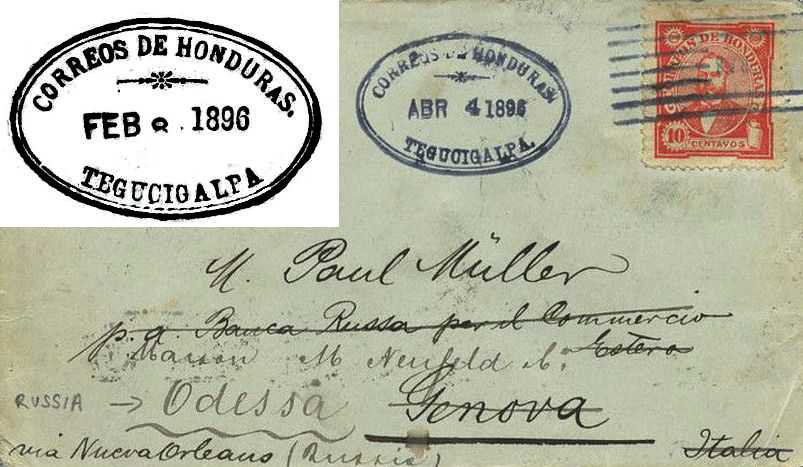 CORREOS DE HONDURAS.
FEB 8. 1896
TEGUCIGALPA
CORREOS DE HONDURAS.
ABR 4 1896
TEGUCIGALPA.
CORREOS DE HONDURAS
10
CENTAVOS
M. Paul Müller
p. a. Banca Russa per il Commercio
Estero
Maison M. Neufeld &
RUSSIA → Odessa
Genova
via Nueva Orleans (Russie)
Italia